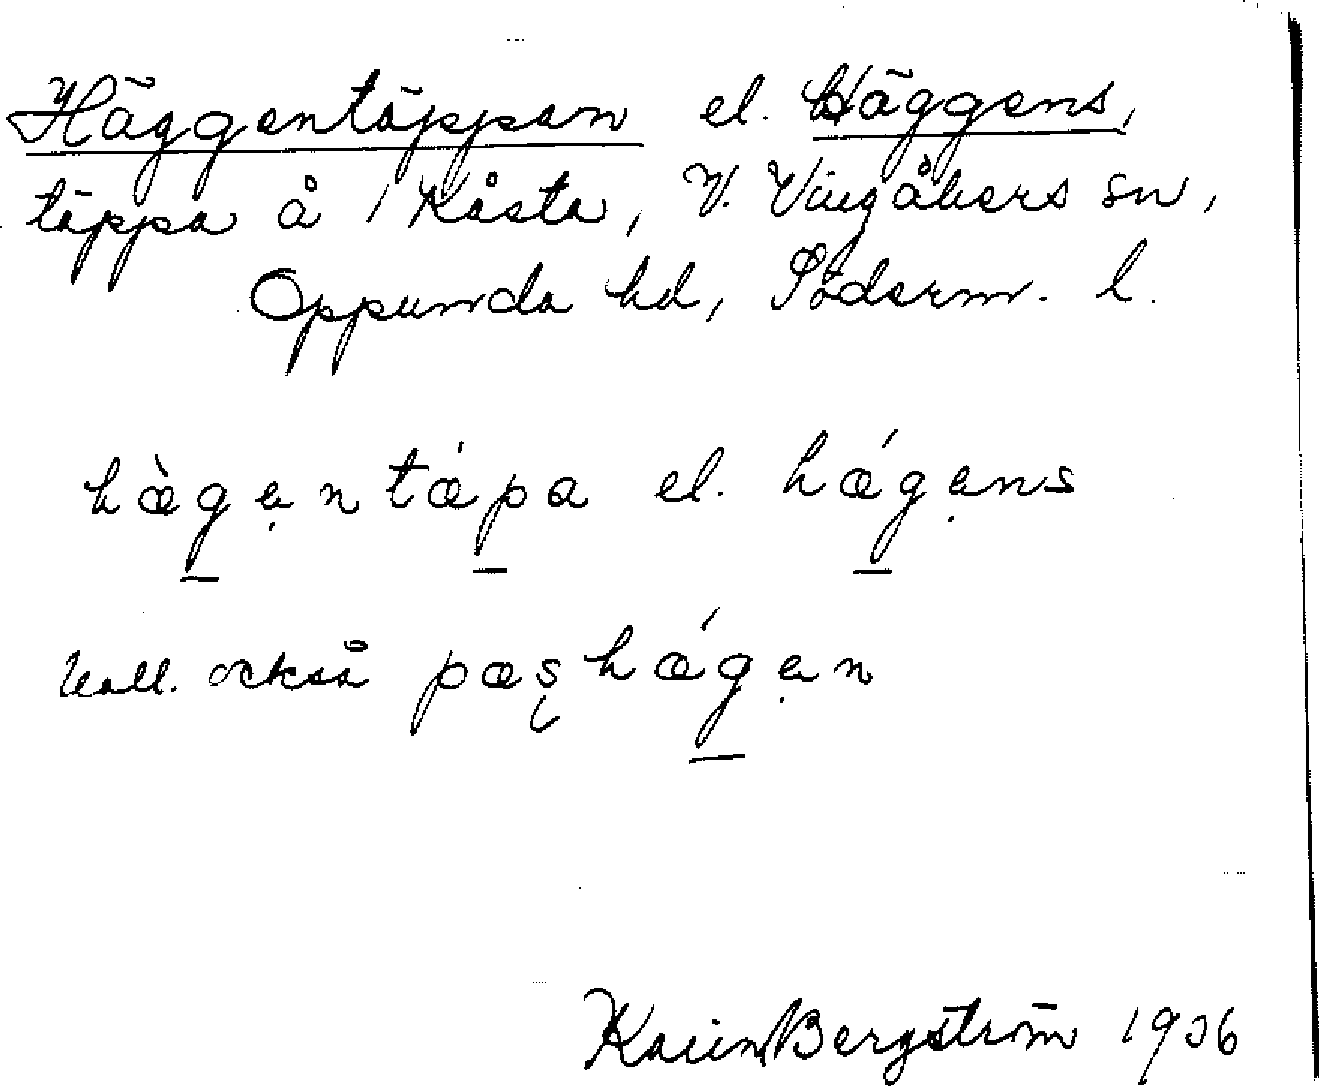 Häggentäppan el. Häggens,
täppa å 1 Kåsta, V. Vingåkers sn,
Oppunda hd, Söderm. l.
hæ̀gẹntǽpa el. hǽgẹns
Kall. också pæşhǽgẹn
Karin Bergström 1936